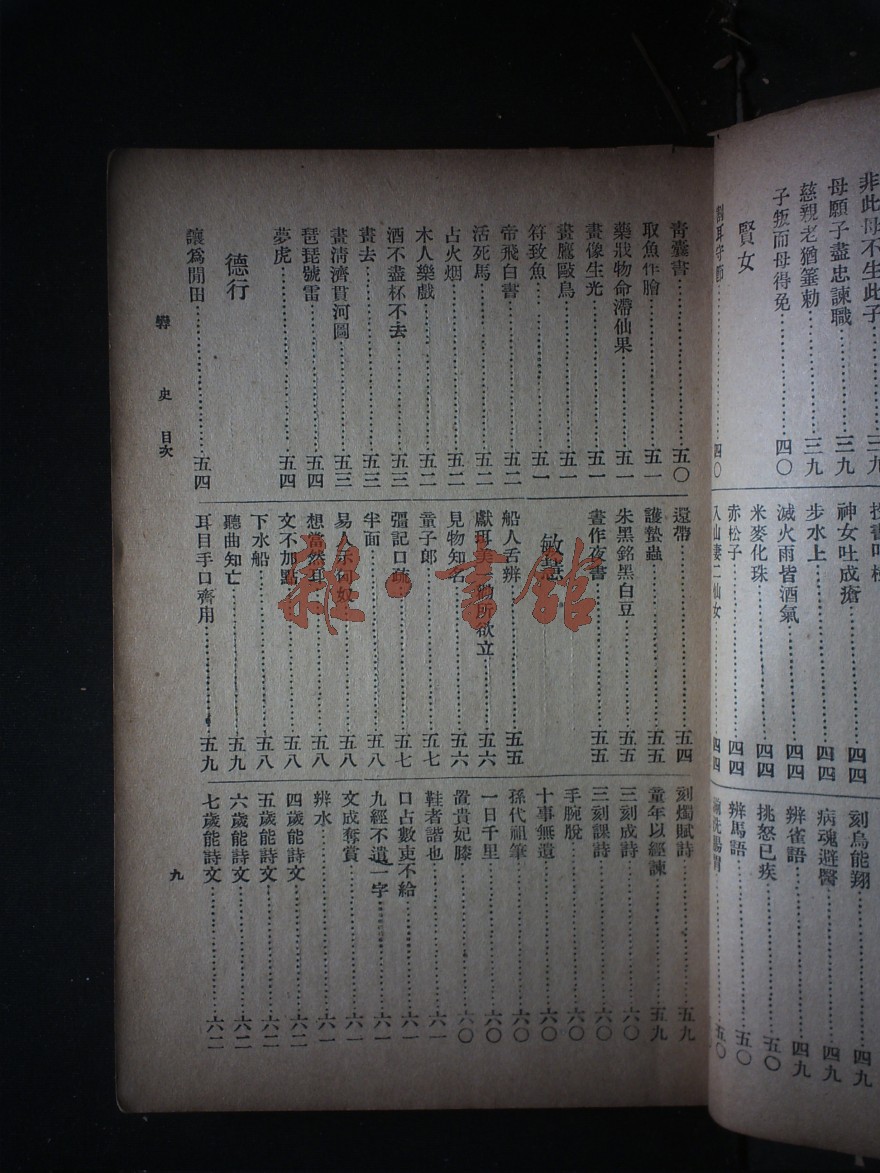 非此母不生此子……三九
母願子盡忠諫職……三九
慈親老猶箠勅……三九
子叛而母得免……四〇
賢女
耳守節……四〇
神女吐成瘡……四四
步水上……四四
滅火雨皆酒氣……四四
米麥化珠……四四
赤松子……四四
入山妻二仙女……四四
刻烏能翔……四九
病魂避醫……四九
辨雀語……四九
挑怒已疾……五〇
辨馬語……五〇
洗腸胃……五〇
青囊書……五〇
取魚作膾……五一
藥狀物命滯仙果……五一
畫像生光……五一
畫鷹毆鳥……五一
符致魚……五一
帝飛白書……五二
活死馬……五二
占火烟……五二
木人樂戲……五二
酒不盡杯不去……五三
畫去……五三
畫清濟貫河圖……五三
琵琶號雷……五四
夢虎……五四
德行
讓爲閒田……五四
還帶……五四
護蟄蟲……五五
朱黑銘黑白豆……五五
晝作夜書……五五
敏慧
船人舌辨……五五
獻珥美 勸所欲立……五六
見物知名……五六
童子郎……五七
彊記口疏……五七
半面……五八
易人示匈奴……五八
想當然耳……五八
文不加點……五八
下水船……五八
聽曲知亡……五九
耳目手口齊用……五九
刻燭賦詩……五九
童年以經諫……五九
三刻成詩……六〇
三刻課詩……六〇
手腕脫……六〇
十事無遺……六〇
孫代祖筆……六〇
一日千里……六〇
置貴妃膝……六〇
鞋者諧也……六一
口占數吏不給……六一
九經不遺一字……六一
文成奪賞……六一
辨水……六一
四歲能詩文……六二
五歲能詩文……六二
六歲能詩文……六二
七歲能詩文……六二
史 目次
九
雜·書館